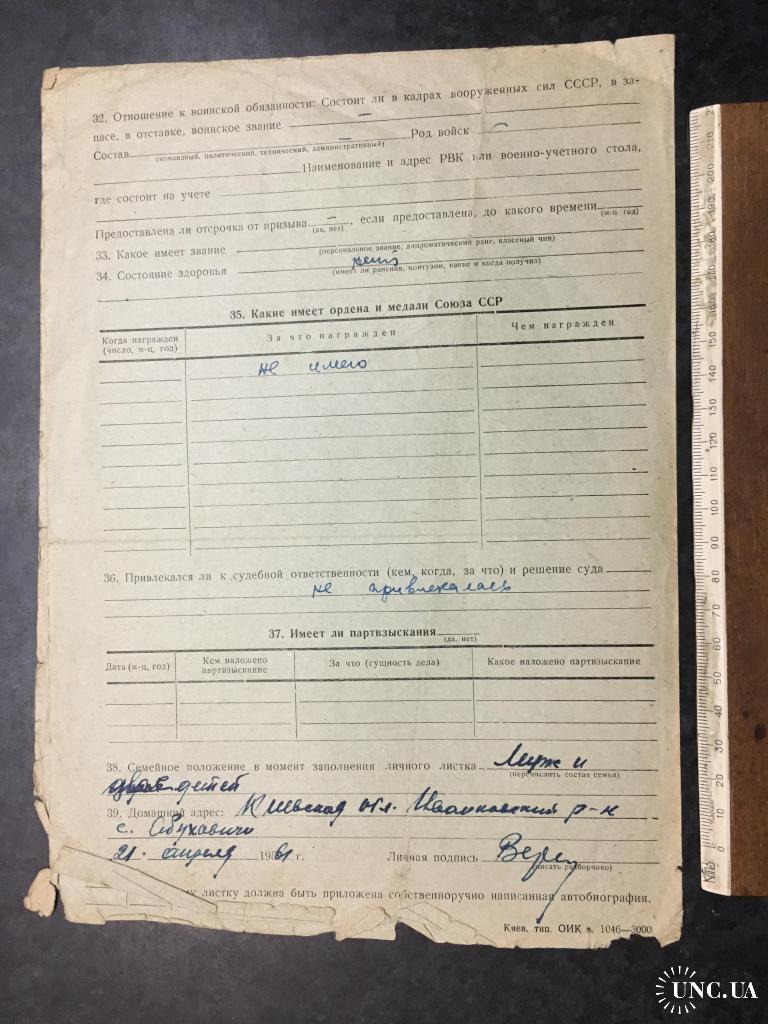 32. Отношение к воинской обязанности: Состоит ли в кадрах вооруженных сил СССР, в за-
пасе, в отставке, воинское звание —
Состав — Род войск —
(командный, политический, технический, административный)
Наименование и адрес РВК или военно-учетного стола,
где состоит на учете
Предоставлена ли отсрочка от призыва — , если предоставлена, до какого времени
(да, нет) (м-ц год)
33. Какое имеет звание
(персональное звание, дипломатический ранг, классный чин)
34. Состояние здоровья
(имеет ли ранения, контузии, какие и когда получил)
35. Какие имеет ордена и медали Союза ССР
Когда награжден (число, м-ц, год) За что награжден Чем награжден
не имею
36. Привлекался ли к судебной ответственности (кем, когда, за что) и решение суда
не привлекалась
37. Имеет ли партвзыскания
(да, нет)
Дата (м-ц, год) Кем наложено партвзыскание За что (сущность дела) Какое наложено партвзыскание
38. Семейное положение в момент заполнения личного листка Муж и
(перечислить состав семьи)
двое детей
39. Домашний адрес: Киевская обл. Иванковский р-н
с. Обуховичи
21. апреля 1961 г. Личная подпись
(писать разборчиво)
листку должна быть приложена собственноручно написанная автобиография.
Киев, тип. ОИК з. 1046—3000
UNC.UA